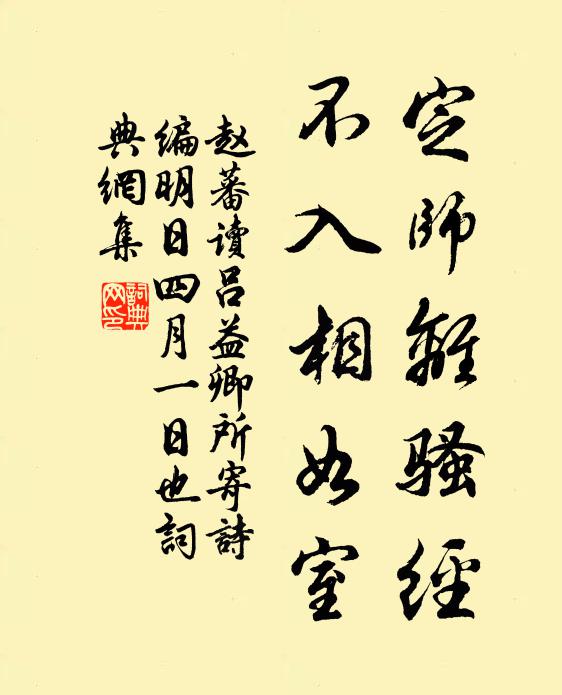 定師離騷經
不入相如室
赵蕃讀吕益卿所寄詩
編明日四月一日也詞
典網集
詞典
网印